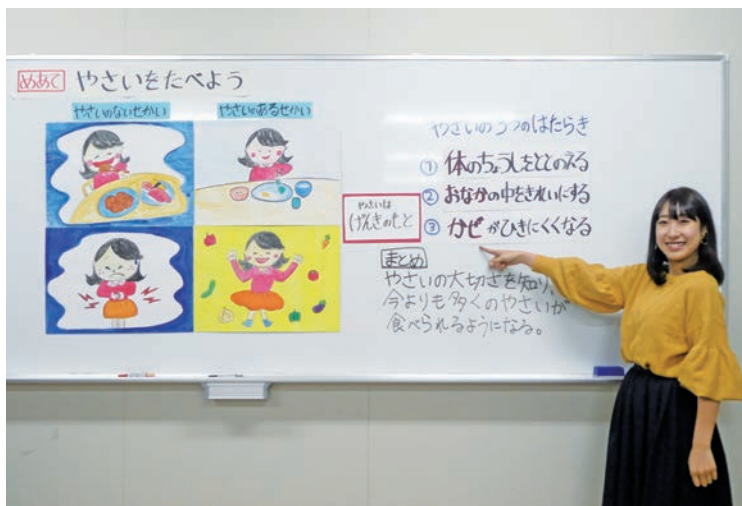 めあて やさいをたべよう
やさいのないせかい
やさいのあるせかい
やさいは
げんきのもと
やさいの3つのはたらき
① 体のちょうしをととのえる
② おなかの中をきれいにする
③ カゼがひきにくくなる
まとめ
やさいの大切さを知り、
今よりも多くのやさいが
食べられるようになる。